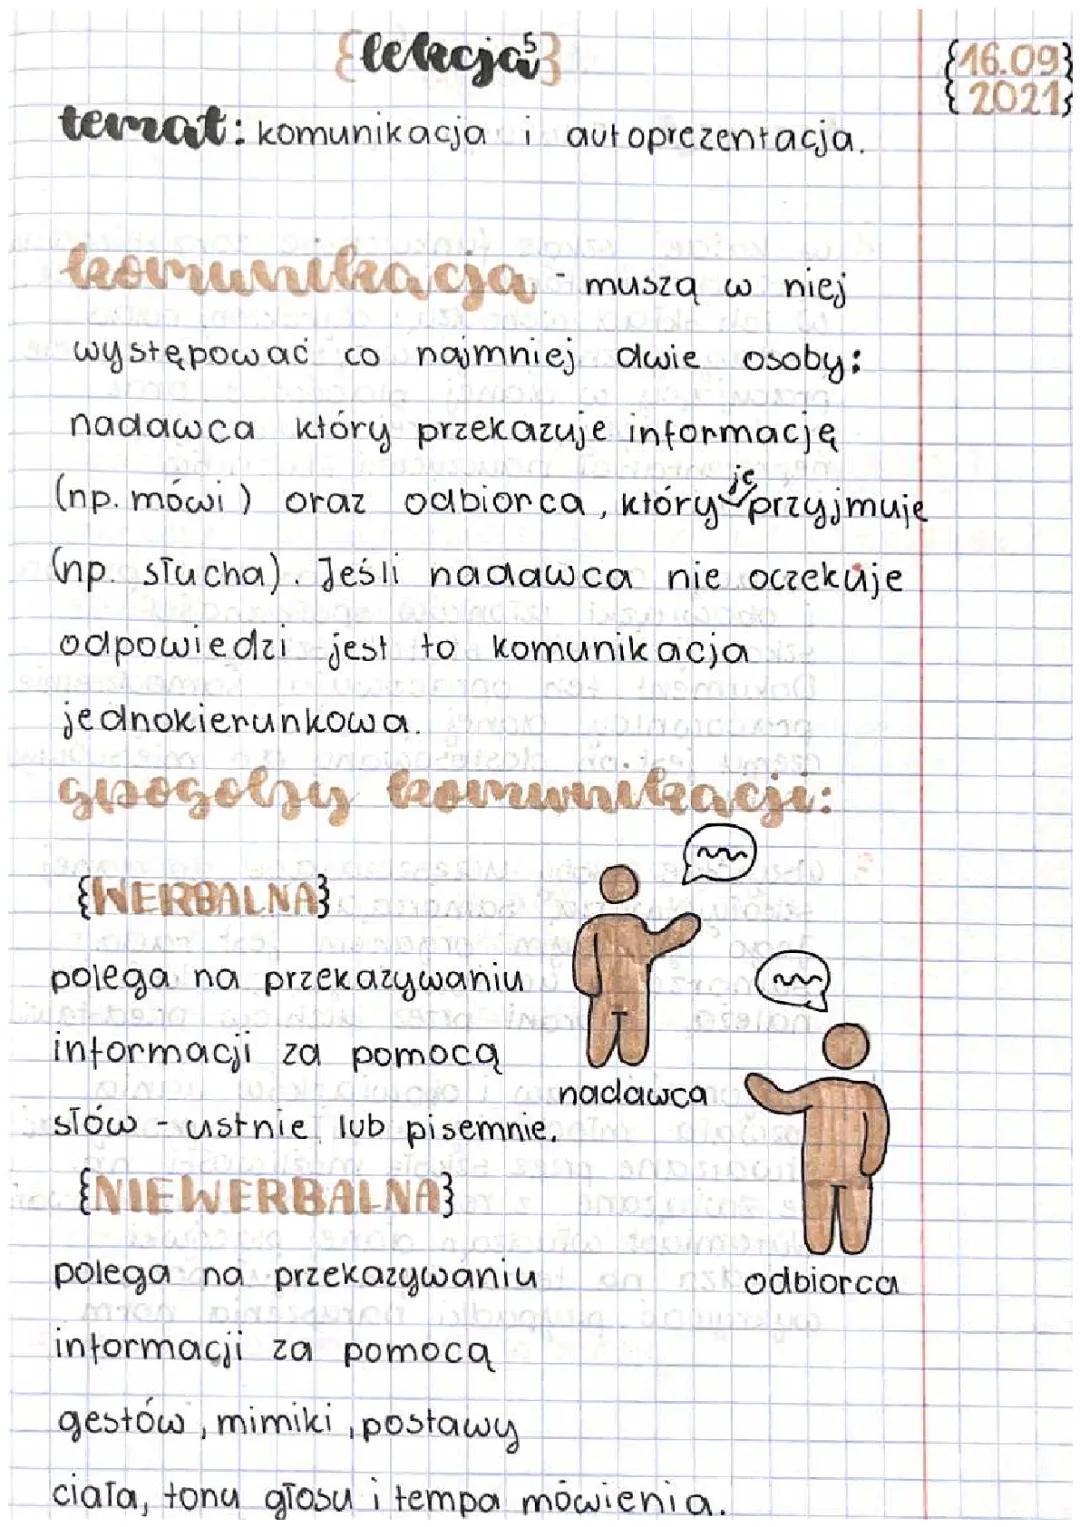 {lekcja 5}
{16.09}
{2021}
temat: komunikacja i autoprezentacja.
komunikacja - muszą w niej
występować co najmniej dwie osoby:
nadawca który przekazuje informację
(np. mówi) oraz odbiorca, który je przyjmuje
(np. słucha). Jeśli nadawca nie oczekuje
odpowiedzi jest to komunikacja
jednokierunkowa.
komunikacji:
{WERBALNA}
polega na przekazywaniu
informacji za pomocą
słów - ustnie lub pisemnie.
nadawca
{NIEWERBALNA}
polega na przekazywaniu
odbiorca
informacji za pomocą
gestów, mimiki, postawy
ciała, tonu głosu i tempa mówienia.